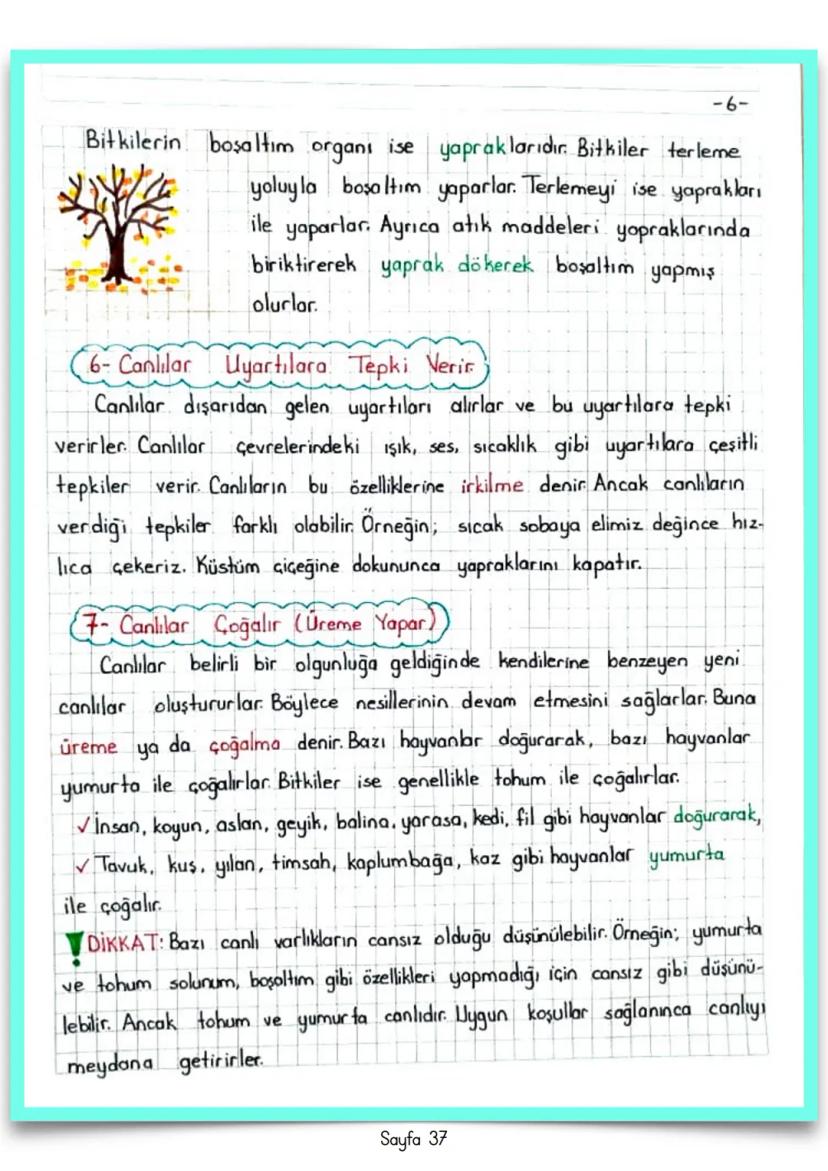 -6-
Bitkilerin boşaltım organı ise yapraklarıdır. Bitkiler terleme
yoluyla boşaltım yaparlar. Terlemeyi ise yaprakları
ile yaparlar. Ayrıca atık maddeleri yapraklarında
biriktirerek yaprak dökerek boşaltım yapmış
olurlar.
6- Canlılar Uyartılara Tepki Verir
Canlılar dışarıdan gelen uyartıları alırlar ve bu uyartılara tepki
verirler. Canlılar çevrelerindeki ışık, ses, sıcaklık gibi uyartılara çeşitli
tepkiler verir. Canlıların bu özelliklerine irkilme denir. Ancak canlıların
verdiği tepkiler farklı olabilir. Örneğin; sıcak sobaya elimiz değince hız-
lıca çekeriz. Küstüm çiçeğine dokununca yapraklarını kapatır.
7- Canlılar Çoğalır (Üreme Yapar)
Canlılar belirli bir olgunluğa geldiğinde kendilerine benzeyen yeni
canlılar oluştururlar. Böylece nesillerinin devam etmesini sağlarlar. Buna
üreme ya da çoğalma denir. Bazı hayvanlar doğurarak, bazı hayvanlar
yumurta ile çoğalırlar. Bitkiler ise genellikle tohum ile çoğalırlar.
✓ İnsan, koyun, aslan, geyik, balina, yarasa, kedi, fil gibi hayvanlar doğurarak,
✓ Tavuk, kuş, yılan, timsah, kaplumbağa, kaz gibi hayvanlar yumurta
ile çoğalır.
! DİKKAT: Bazı canlı varlıkların cansız olduğu düşünülebilir. Örneğin; yumurta
ve tohum solunum, boşaltım gibi özellikleri yapmadığı için cansız gibi düşünü-
lebilir. Ancak tohum ve yumurta canlıdır. Uygun koşullar sağlanınca canlıyı
meydana getirirler.
Sayfa 37